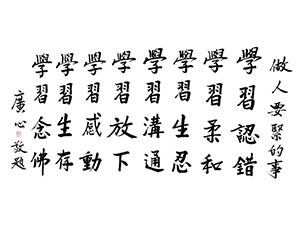 做人要緊的事
學習認錯
學習柔和
學習生忍
學習溝通
學習放下
學習感動
學習生存
學習念佛
廣心敬題